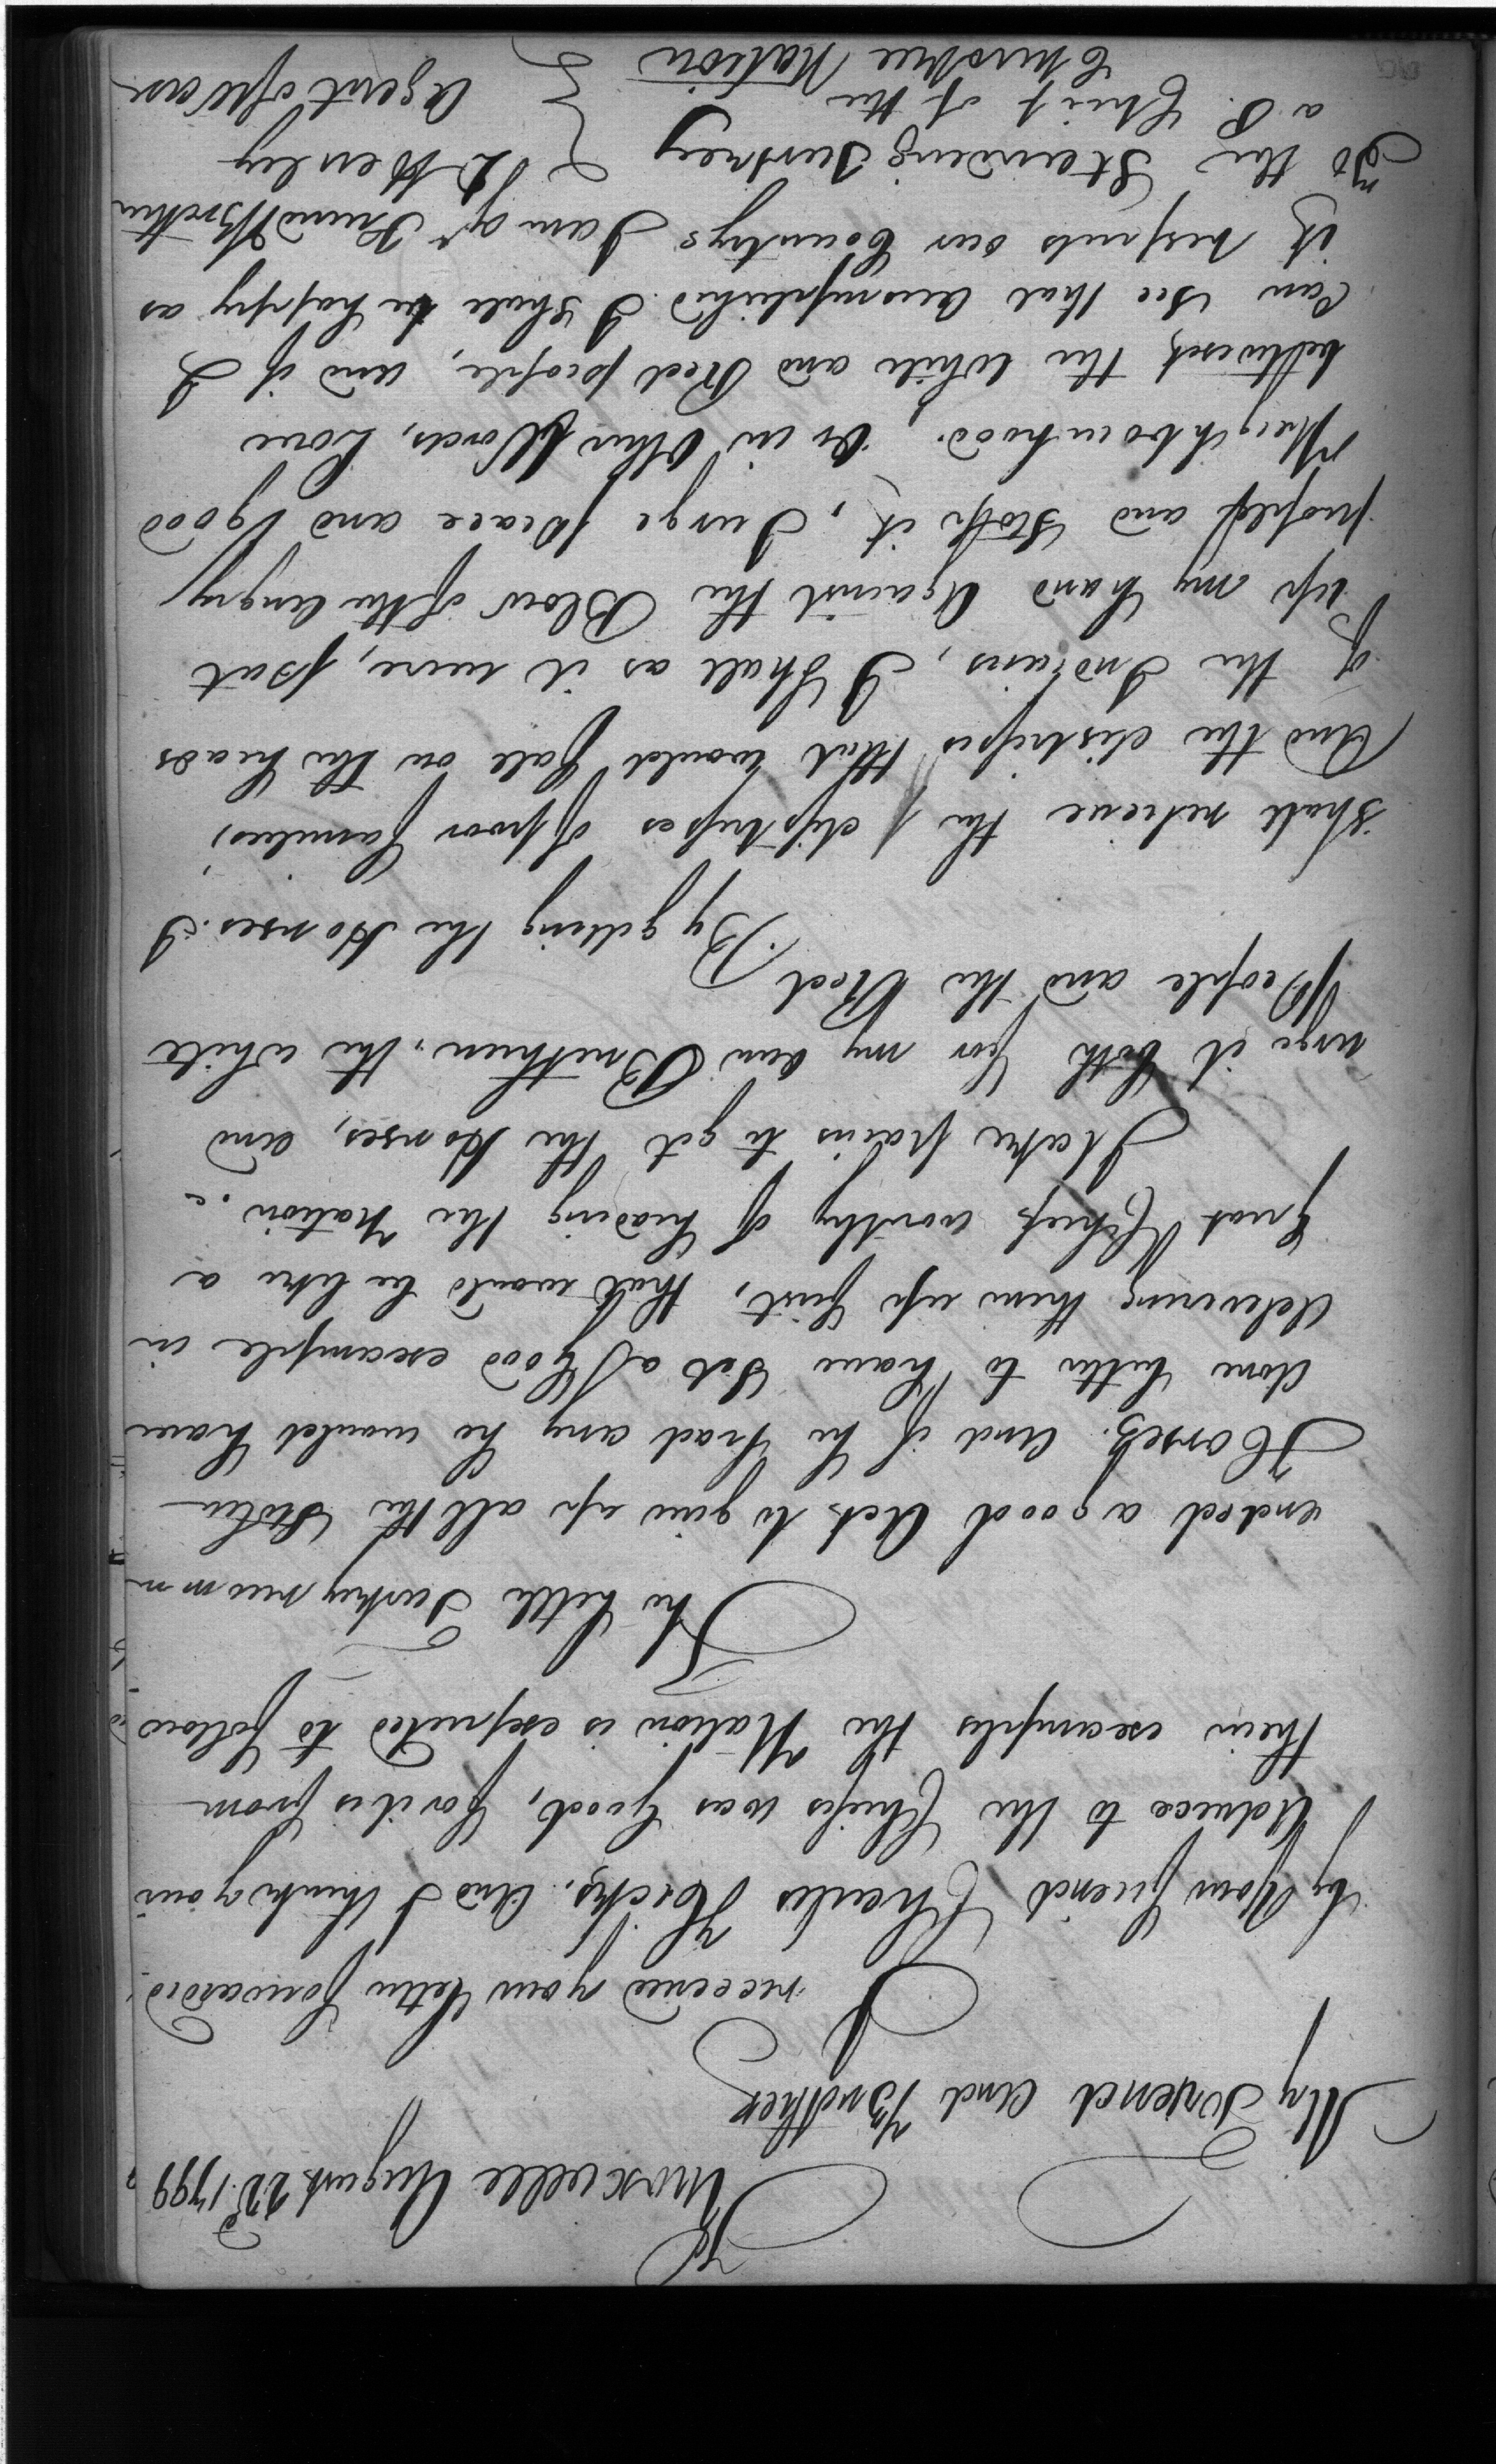 Knoxville August 22d. 1799
My Friend And Brother
I received your letter forwarded
by Your friend Charles Hicks. And I think your
Advice to the Chiefs was Good, for it is from
their examples the Nation is expected to follow
The little Turkey recomm
ended a good Act to give up all the Stolen
Horses. And if he had any he would have
done better to have Set a Good example in
delivering them up first, that would be like a
great Chief worthy of heading the Nation.
I take pains to get the Horses, and
urge it both for my own Brethren, the white
People and the Red
By getting the Horses. I
Shall relieve the distresses of poor families,
And the distresses that would fall on the heads
of the Indians, I Shall as it were, put
up my hand Against the Blow of the angry
people and Stop it, I urge peace and Good
Neighbourhood. Or in Other Words, Love
betwext the White and Red people, and if I
Can See that Accomplished I Shall be happy as
it respects our Countrys I am yr Friend & Brother
To the Standing Turkey D Henley
a P. Chief of the Agent of War
Cherokee Nation